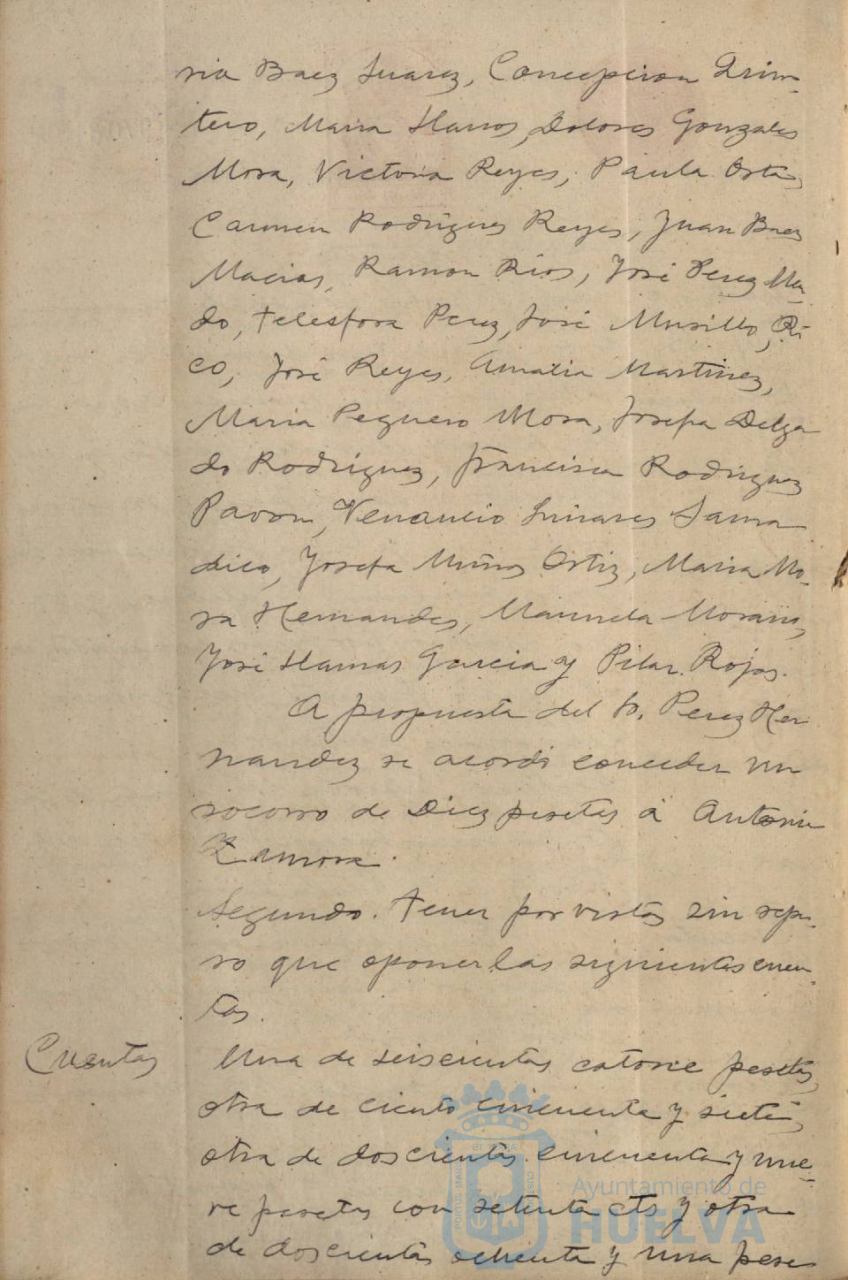 ria Baez Suarez, Concepcion Quin-
tero, Maria Llanos, Dolores Gonzales
Mora, Victoria Reyes, Paula Orta,
Carmen Rodrigues Reyes, Juan Baez
Macias, Ramon Rios, José Perez Ma-
do, Telesfora Perez, José Murillo, Ri-
co, José Reyes, Amalia Martinez,
Maria Peguero Mora, Josefa Delga
do Rodriguez, Francisca Rodriguez
Pavon, Venancio Linares
dico, Josefa Muños Ortiz, Maria Mo-
ra Hernandes, Manuela Morano,
José Llamas Garcia y Pilar Rojas.
A propuesta del Sr. Perez Her
nandez se acordó conceder un
socorro de Diez pesetas á Antonio
Zamora.
Segundo. Tener por vistas sin repa-
ro que oponer las siguientes cuen-
tas.
Cuentas
Una de seiscientas catorce pesetas,
otra de ciento cincuenta y siete,
otra de doscientas cincuenta y nue-
ve pesetas con setenta cts y otra
de doscientas ochenta y una pese
Ayuntamiento de
HUELVA